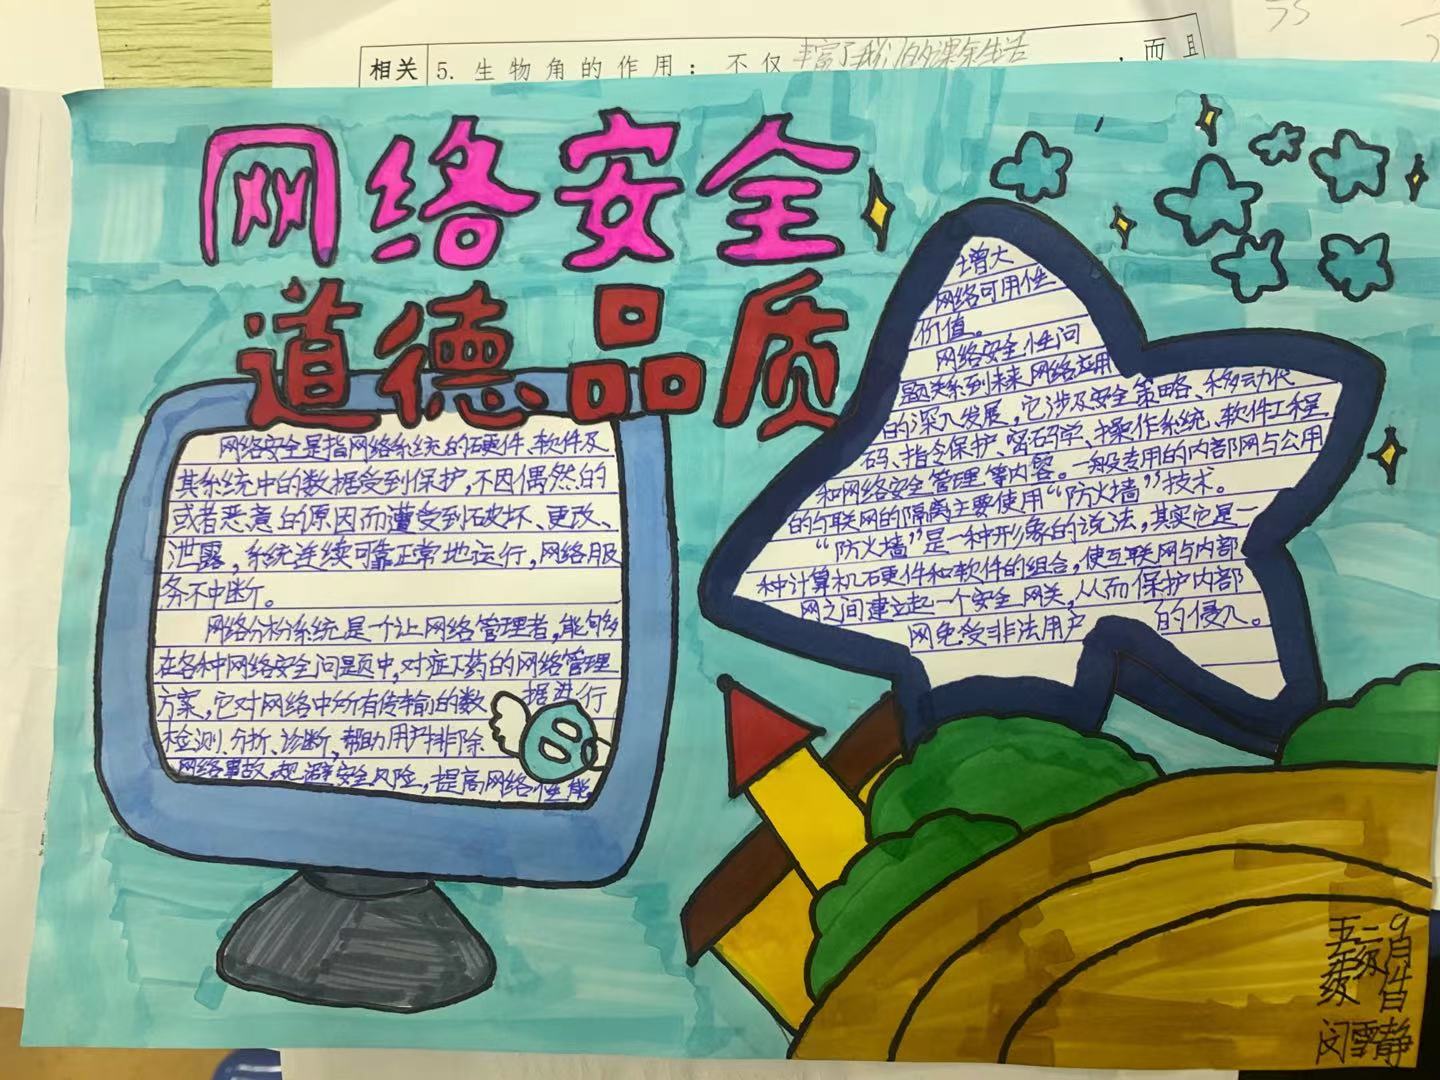 相关 5. 生物角的作用：不仅丰富了我们的课余生活，而且
网络安全
道德品质
网络安全是指网络系统的硬件、软件及
其系统中的数据受到保护,不因偶然的
或者恶意的原因而遭受到破坏、更改、
泄露，系统连续可靠正常地运行，网络服
务不中断。
网络分析系统是一个让网络管理者，能够
在各种网络安全问题中,对症下药的网络管理
方案，它对网络中所有传输的数据进行
检测、分析、诊断，帮助用户排除
网络事故，规避安全风险，提高网络性能，
增大
网络可用性
价值。
网络安全性问
题关系到未来网络应用
的深入发展，它涉及安全策略、移动代
码、指令保护、密码学、操作系统、软件工程
和网络安全管理等内容。一般专用的内部网与公用
的互联网的隔离主要使用“防火墙”技术。
“防火墙”是一种形象的说法，其实它是一
种计算机硬件和软件的组合，使互联网与内部
网之间建立起一个安全网关，从而保护内部
网免受非法用户的侵入。
五年级
二级
9月
闵雪静